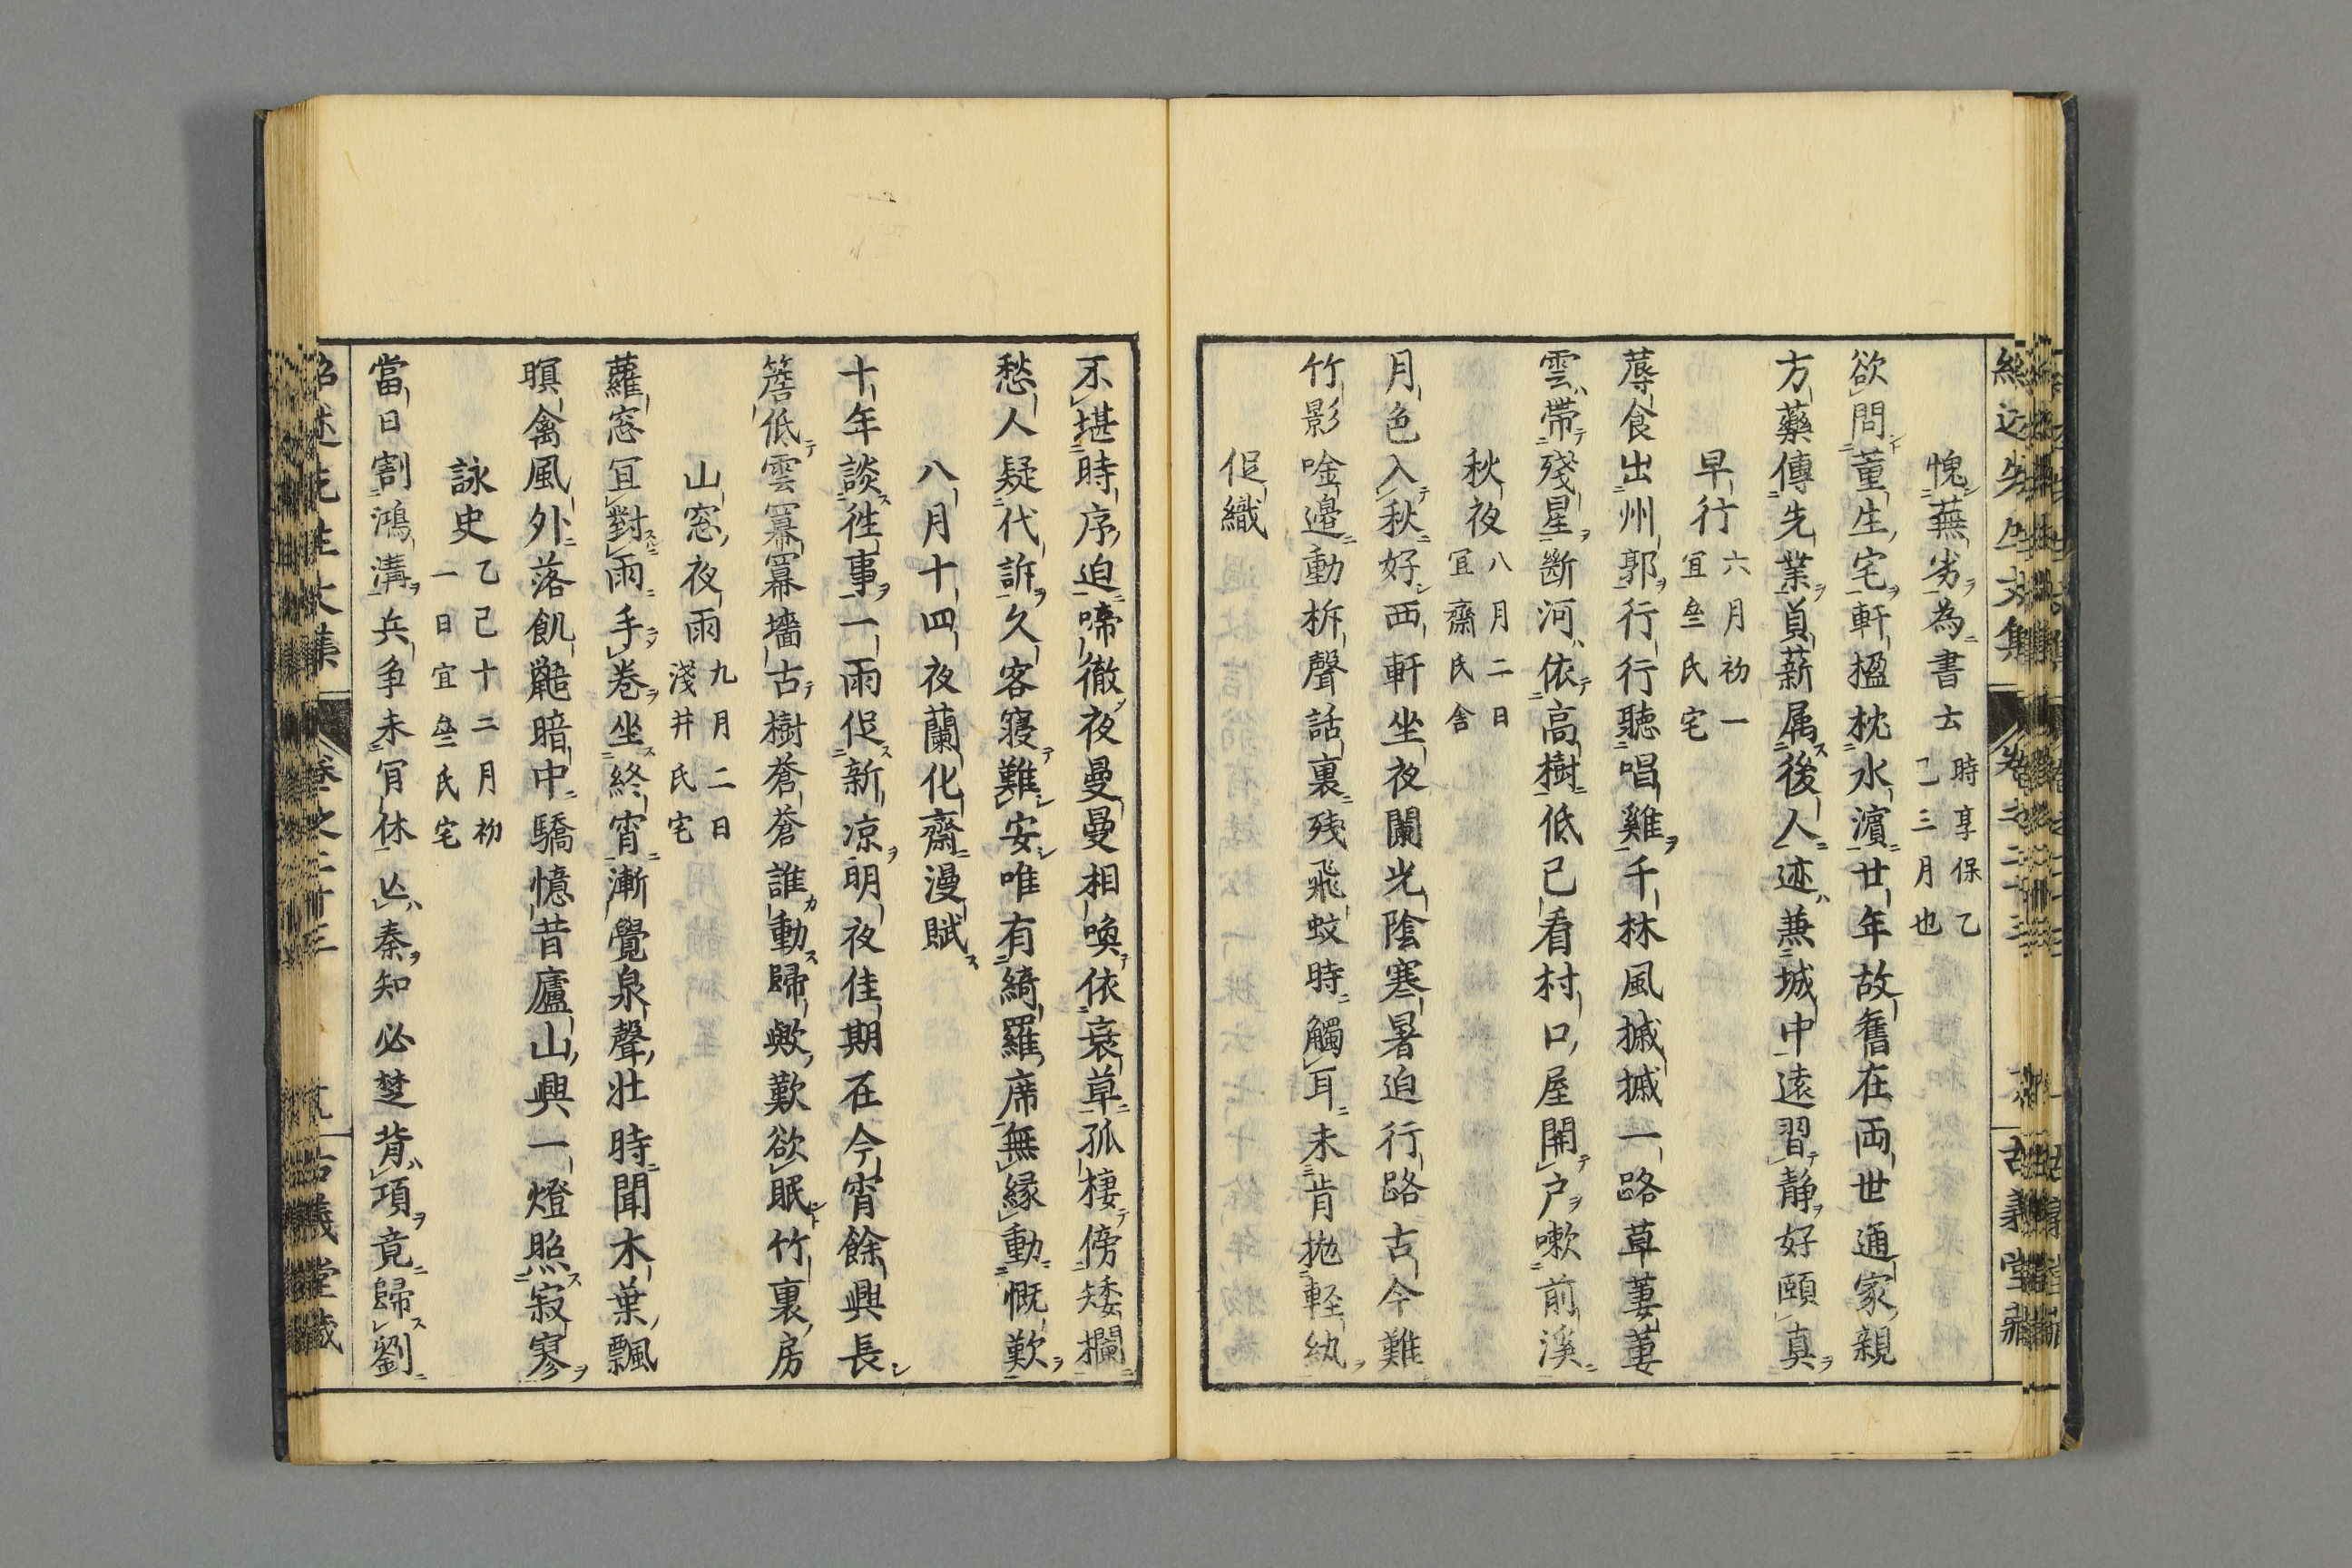 愧蕪劣為書云 時享保乙巳三月也
欲問董生宅軒楹枕水濵廿年故舊在両世通家親
方藥傳先業負薪属後人迹兼城中遠習静好頤真
早行 六月初一宜叄氏宅
蓐食出州郭行行聴唱雞千林風摵摵一路草萋萋
雲帶殘星斷河依高樹低已看村口屋開戸嗽前溪
秋夜 八月二日宜齋氏舎
月色入秋好西軒坐夜闌光陰寒暑迫行路古今難
竹影唫邉動柝聲話裏残飛蚊時觸耳未肯抛軽紈
促織
不堪時序迫啼徹夜曼曼相喚依衰草孤棲傍矮欄
愁人疑代訴久客寝難安唯有綺羅席無縁動慨歎
八月十四夜蘭化齋漫賦
十年談徃事一雨促新凉明夜佳期在今宵餘興長
簷低雲冪冪墻古樹蒼蒼誰動歸歟歎欲眠竹裏房
山窓夜雨 九月二日淺井氏宅
蘿窓冝對雨手巻坐終宵漸覺泉聲壮時聞木葉飄
暝禽風外落飢鼯暗中驕憶昔廬山興一燈照寂寥
詠史 乙己十二月初一日宜叄氏宅
當日割鴻溝兵争未肯休亾秦知必楚背項竟歸劉
紹述先生文集 巻之二十三 古義堂蔵